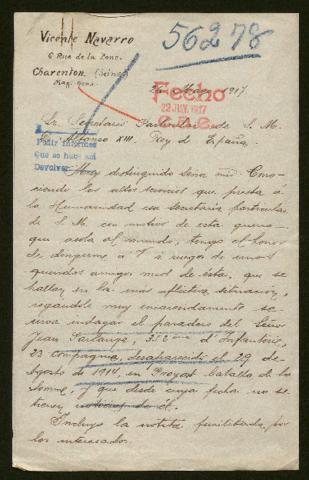 Vicente Navarro
6 Rue de la Zone.
Charenton. (Seine)
56278
Fecho
22 JUN. 1917
Mayo 1917.
Sr. Secretario Particular de S. M.
Alfonso XIII. Rey de España,
Pedir informes
Que se haga así
Devolver
Muy distinguido Señor mio: Cono-
ciendo los altos servicios que presta á
la Humanidad esa Secretaria particular
de S. M. con motivo de esta guerra
que asola al mundo, tengo el honor
de dirigirme á V. á ruegos de unos
queridos amigos mios de ésta, que se
hallan en la mas aflictiva situación,
rogandole muy encarecidamente se
sirva indagar el paradero del Señor
Jean 352 d'Infanterie,
23 Compagnie, desaparecido el 29 de
Agosto de 1914, en Proyart batalla de la
Somme, y que desde cuya fecha no se
tienen noticias de él.
Incluyo la notita facilitada, por
los interesados.